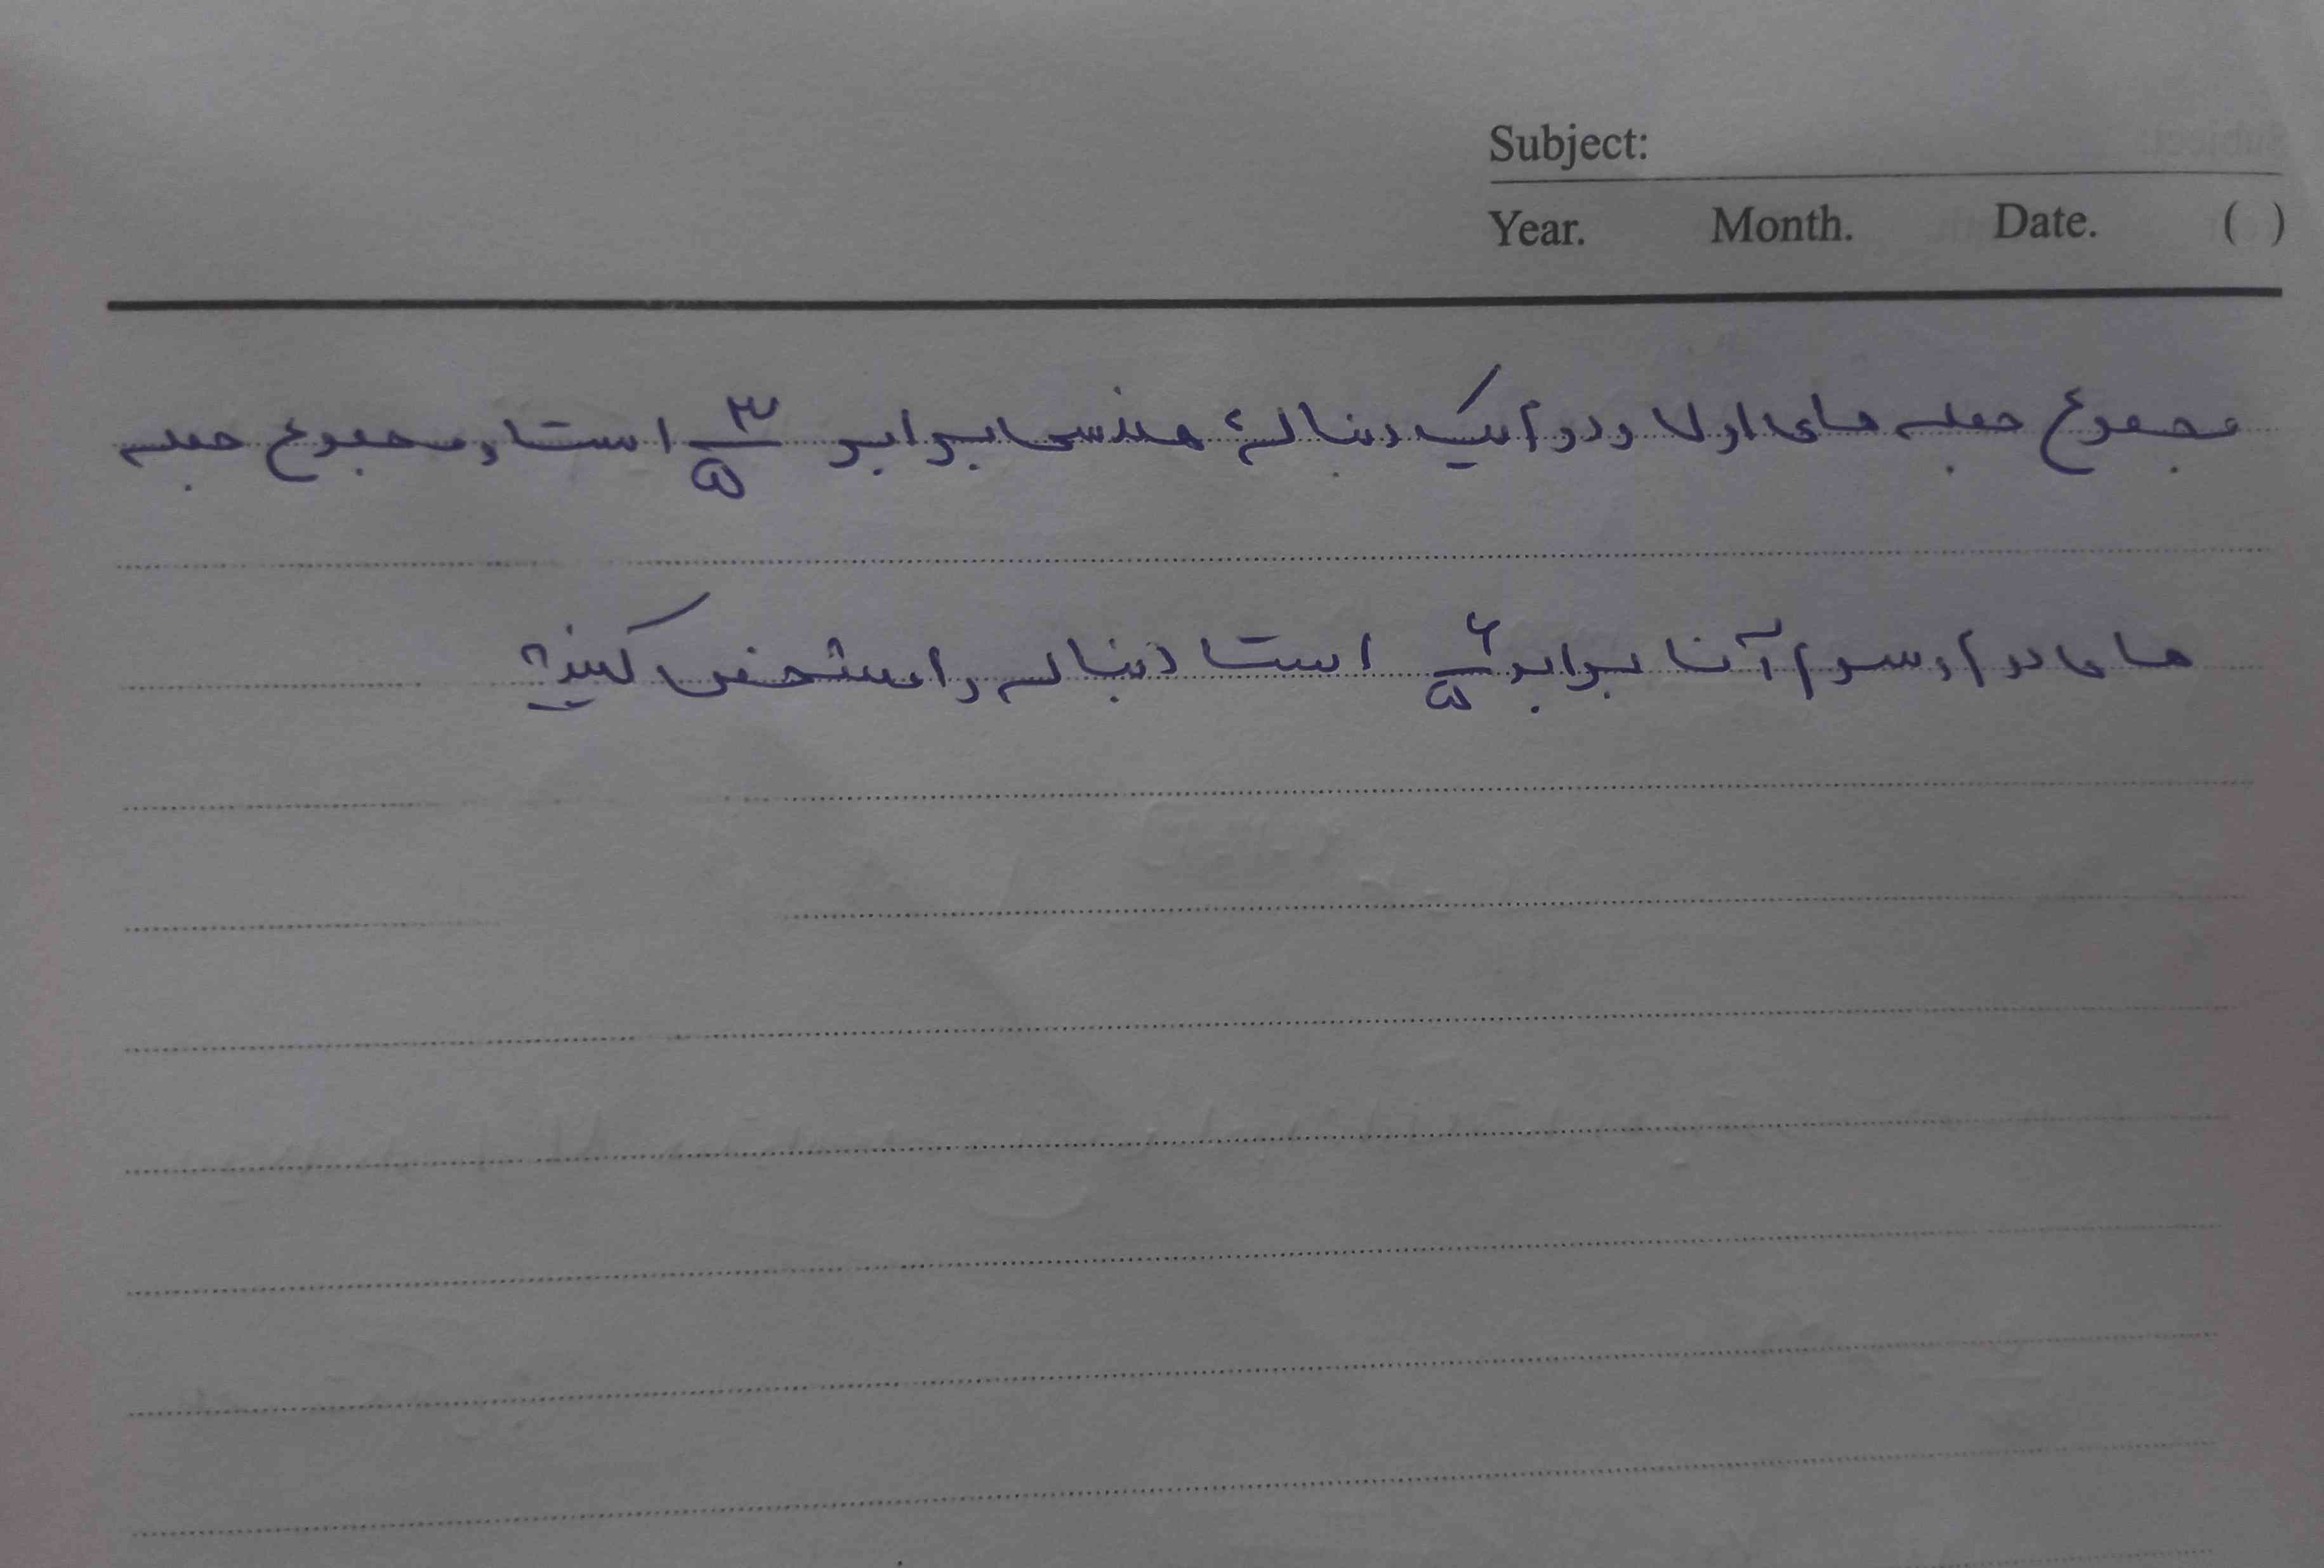 Subject:
Year. Month. Date. ( )
مجموع جمله های اول و دوم یک دنبالهٔ هندسی برابر ۳/۵ است و مجموع جمله
های دوم و سوم آن برابر ۶/۵ است دنباله را مشخص کنید؟